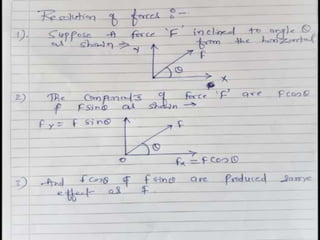 Resolution of forces :-
1). Suppose A force 'F' inclined to angle θ
as shown → from the horizontal
Y F
θ
X
2) The Components of force 'F' are Fcosθ
& Fsinθ as shown →
Fy = F sinθ
F
θ
O Fx = Fcosθ
3) And fcosθ & fsinθ are produced same
effect as F.